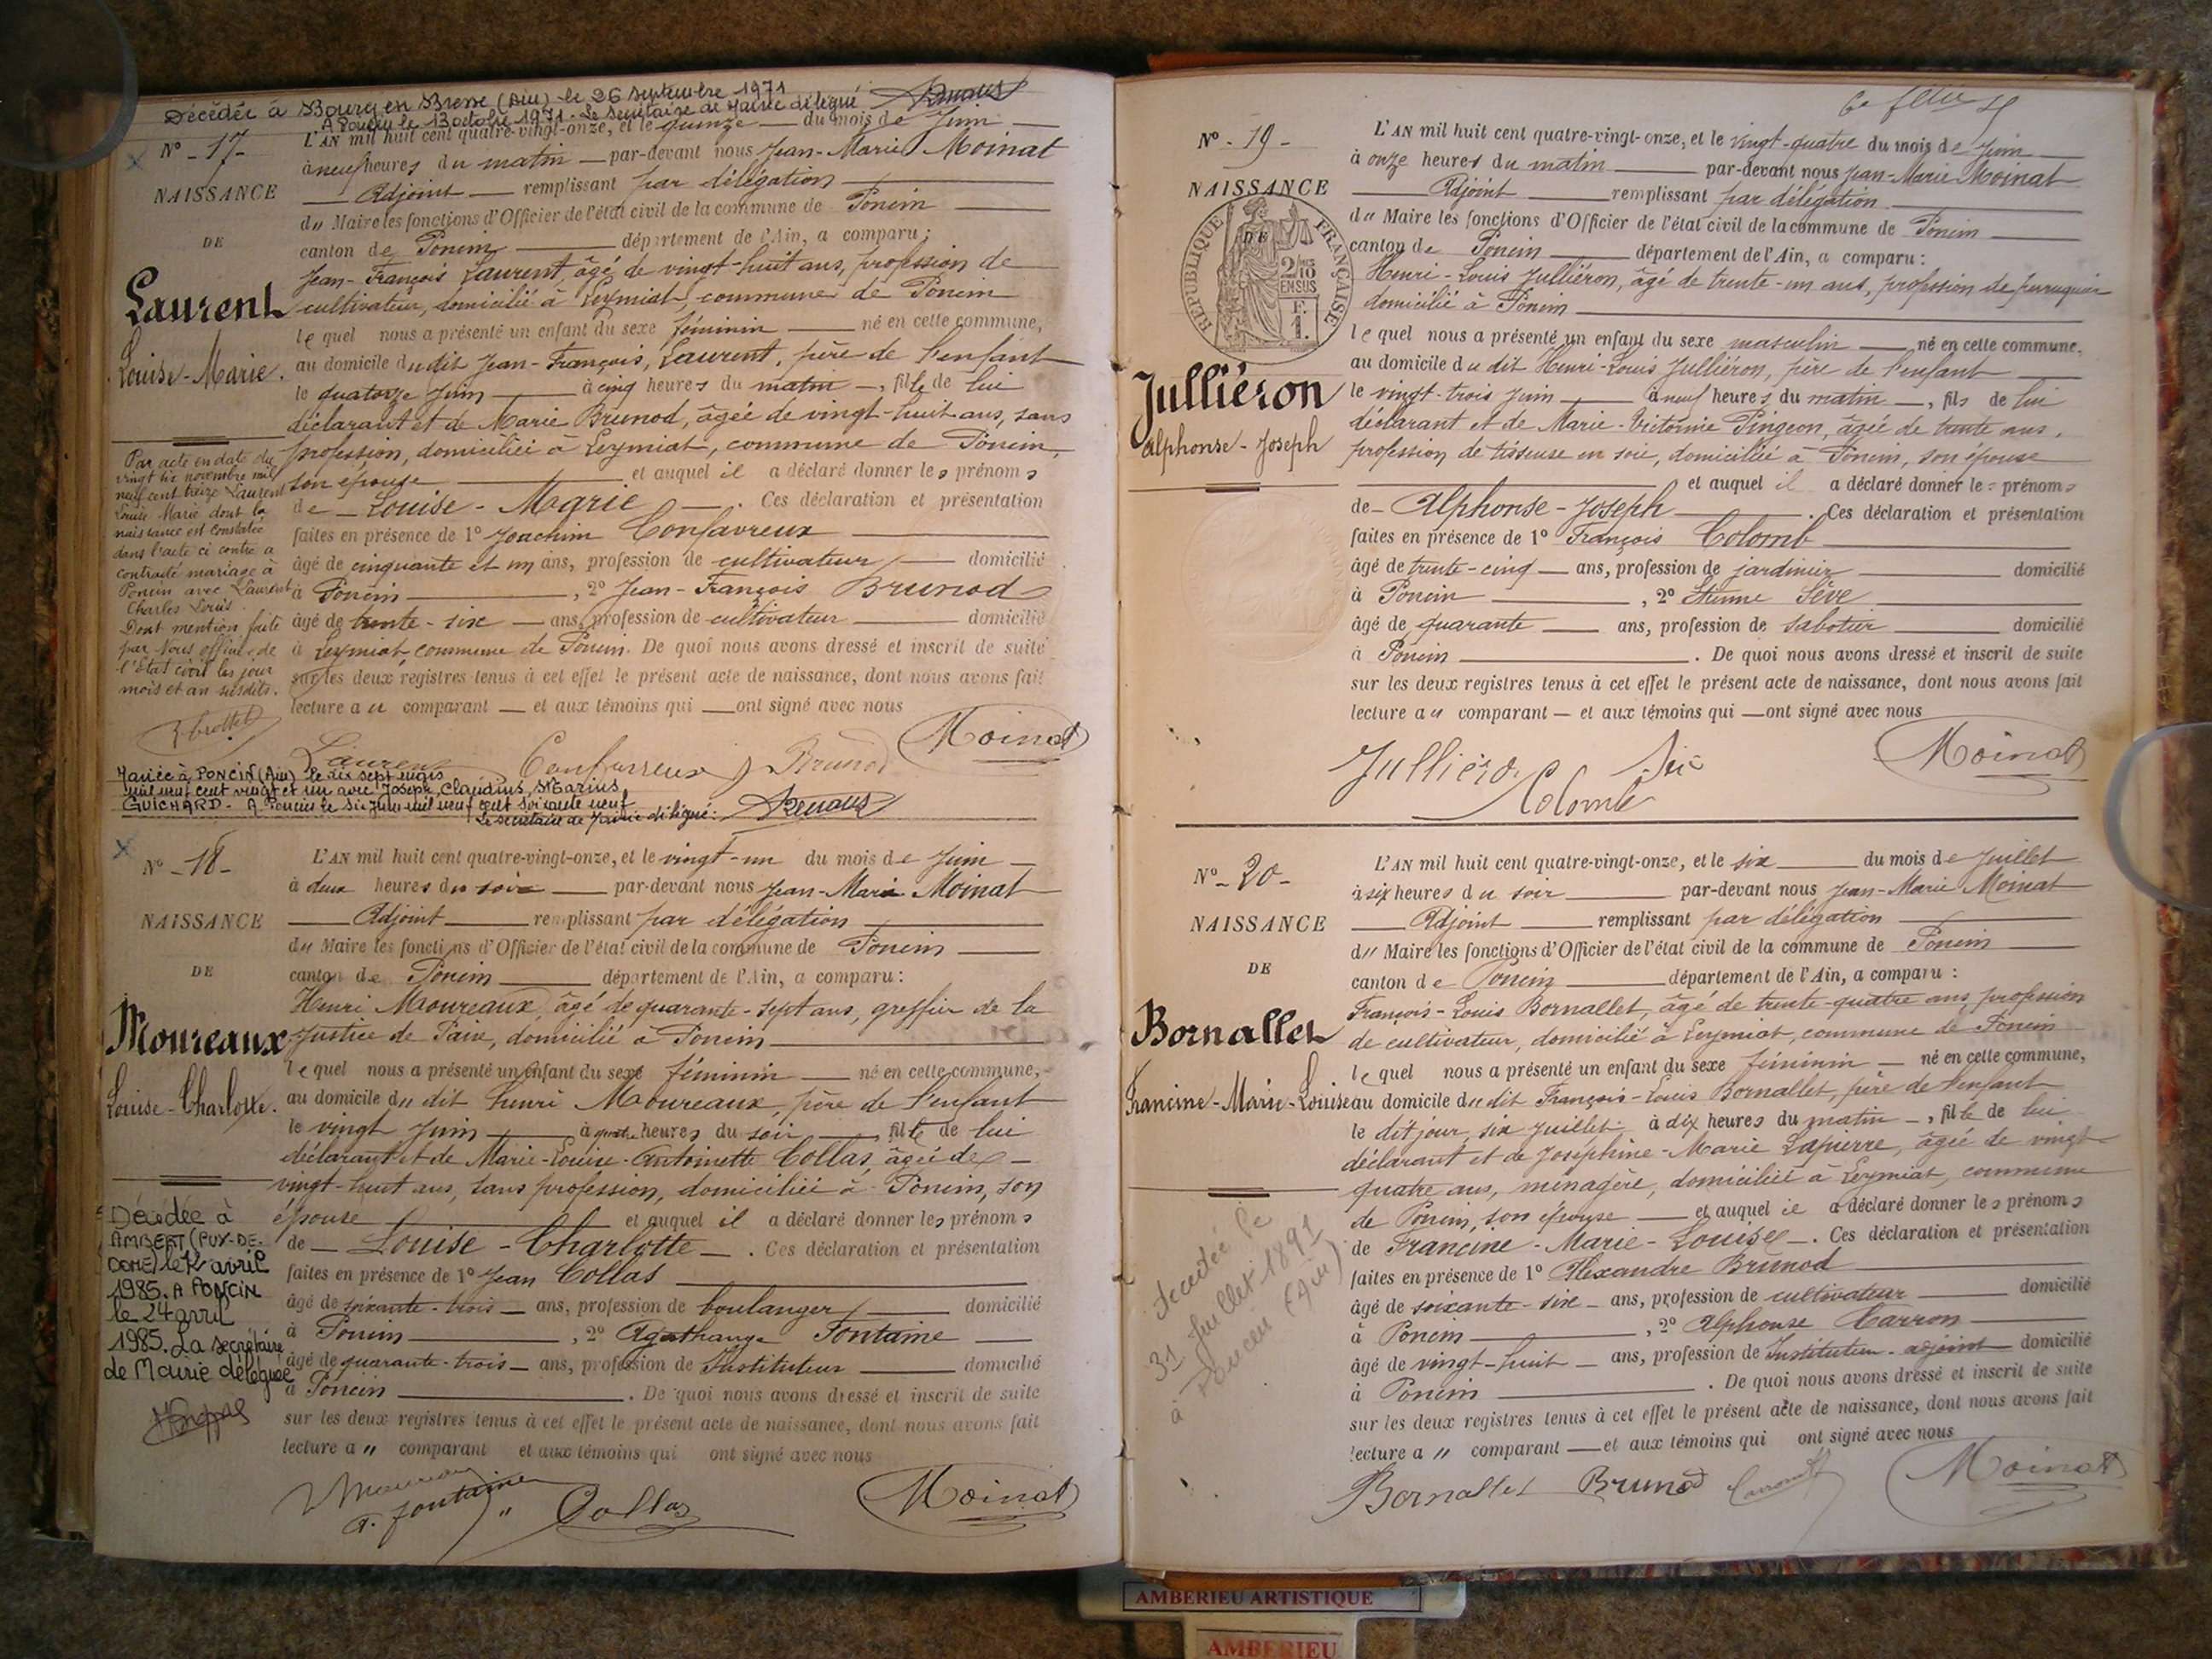 Décédée à Bourg en Bresse (Ain) le 26 septembre 1971
A Poncin le 13 octobre 1971. Le Secrétaire de Mairie délégué
N° - 17 -
NAISSANCE
DE
Laurent
Louise-Marie.
L'AN mil huit cent quatre-vingt-onze, et le quinze du mois de Juin
à neuf heures du matin par-devant nous Jean-Marie Moinat
Adjoint remplissant par délégation
du Maire les fonctions d'Officier de l'état civil de la commune de Poncin
canton de Poncin département de l'Ain, a comparu :
Jean-François Laurent, âgé de vingt-huit ans, profession de
cultivateur, domicilié à Leymiat, commune de Poncin
lequel nous a présenté un enfant du sexe féminin né en cette commune,
au domicile du dit Jean-François, Laurent, père de l'enfant
le quatorze Juin à cinq heures du matin, fille de lui
déclarant et de Marie Brunod, âgée de vingt-huit ans, sans
profession, domiciliée à Leymiat, commune de Poncin,
son épouse et auquel il a déclaré donner les prénoms
de Louise-Marie. Ces déclaration et présentation
faites en présence de 1° Joachim Confavreux
âgé de cinquante et un ans, profession de cultivateur domicilié
à Poncin, 2° Jean-François Brunod
âgé de trente-six ans, profession de cultivateur domicilié
à Leymiat, commune de Poncin. De quoi nous avons dressé et inscrit de suite
sur les deux registres tenus à cet effet le présent acte de naissance, dont nous avons fait
lecture au comparant et aux témoins qui ont signé avec nous
Par acte en date du
vingt six novembre mil
neuf cent treize Laurent
Louise Marie dont la
naissance est constatée
dans l'acte ci contre a
contracté mariage à
Poncin avec Laurent
Charles Louis.
Dont mention faite
par Nous officier de
l'Etat civil les jour
mois et an susdits.
Laurent Confavreux Brunod Moinat
Mariée à PONCIN (Ain) le dix sept mars
mil neuf cent vingt et un avec Joseph, Claudius, Marius
GUICHARD - A Poncin le six juin mil neuf cent soixante neuf
Le secrétaire de Mairie délégué:
N° - 18 -
NAISSANCE
DE
Moureaux
Louise-Charlotte.
L'AN mil huit cent quatre-vingt-onze, et le vingt-un du mois de Juin
à deux heures du soir par-devant nous Jean-Marie Moinat
Adjoint remplissant par délégation
du Maire les fonctions d'Officier de l'état civil de la commune de Poncin
canton de Poncin département de l'Ain, a comparu :
Henri Moureaux, âgé de quarante-sept ans, greffier de la
Justice de Paix, domicilié à Poncin
lequel nous a présenté un enfant du sexe féminin né en cette commune,
au domicile du dit Henri Moureaux, père de l'enfant
le vingt Juin à quatre heures du soir, fille de lui
déclarant et de Marie-Louise-Antoinette Collas, âgée de
vingt-huit ans, sans profession, domiciliée à Poncin, son
épouse et auquel il a déclaré donner les prénoms
de Louise-Charlotte. Ces déclaration et présentation
faites en présence de 1° Jean Collas
âgé de soixante-trois ans, profession de boulanger domicilié
à Poncin, 2° Agathange Fontaine
âgé de quarante-trois ans, profession de Instituteur domicilié
à Poncin. De quoi nous avons dressé et inscrit de suite
sur les deux registres tenus à cet effet le présent acte de naissance, dont nous avons fait
lecture a " comparant et aux témoins qui ont signé avec nous
Décédée à
AMBERT (PUY-DE-
DOME) le avril
1985. A PONCIN
le 24 avril
1985. La secrétaire
de Mairie déléguée
A. Fontaine Collas Moinat
6e feuillet
N° - 19 -
NAISSANCE
DE
RÉPUBLIQUE FRANÇAISE
2/10 EN SUS
F. 1.
Julliéron
Alphonse-Joseph
L'AN mil huit cent quatre-vingt-onze, et le vingt-quatre du mois de Juin
à onze heures du matin par-devant nous Jean-Marie Moinat
Adjoint remplissant par délégation
du Maire les fonctions d'Officier de l'état civil de la commune de Poncin
canton de Poncin département de l'Ain, a comparu :
Henri-Louis Julliéron, âgé de trente-un ans, profession de perruquier
domicilié à Poncin
lequel nous a présenté un enfant du sexe masculin né en cette commune,
au domicile du dit Henri-Louis Julliéron, père de l'enfant
le vingt-trois Juin à neuf heures du matin, fils de lui
déclarant et de Marie-Victorine Pingeon, âgée de trente ans,
profession de tisseuse en soie, domiciliée à Poncin, son épouse
et auquel il a déclaré donner les prénoms
de Alphonse-Joseph. Ces déclaration et présentation
faites en présence de 1° François Colomb
âgé de trente-cinq ans, profession de jardinier domicilié
à Poncin, 2° Etienne Sève
âgé de quarante ans, profession de sabotier domicilié
à Poncin. De quoi nous avons dressé et inscrit de suite
sur les deux registres tenus à cet effet le présent acte de naissance, dont nous avons fait
lecture au comparant et aux témoins qui ont signé avec nous
Julliéron Colomb Sève Moinat
N° - 20 -
NAISSANCE
DE
Bornallet
Francine-Marie-Louise
L'AN mil huit cent quatre-vingt-onze, et le six du mois de Juillet
à six heures du soir par-devant nous Jean-Marie Moinat
Adjoint remplissant par délégation
du Maire les fonctions d'Officier de l'état civil de la commune de Poncin
canton de Poncin département de l'Ain, a comparu :
François-Louis Bornallet, âgé de trente-quatre ans, profession
de cultivateur, domicilié à Leymiat, commune de Poncin
lequel nous a présenté un enfant du sexe féminin né en cette commune,
au domicile du dit François-Louis Bornallet, père de l'enfant
le dit jour, six Juillet à dix heures du matin, fille de lui
déclarant et de Joséphine-Marie Lapierre, âgée de vingt
quatre ans, ménagère, domiciliée à Leymiat, commune
de Poncin, son épouse et auquel il a déclaré donner les prénoms
de Francine-Marie-Louise. Ces déclaration et présentation
faites en présence de 1° Alexandre Brunod
âgé de soixante-six ans, profession de cultivateur domicilié
à Poncin, 2° Alphonse Carron
âgé de vingt-huit ans, profession de Instituteur-adjoint domicilié
à Poncin. De quoi nous avons dressé et inscrit de suite
sur les deux registres tenus à cet effet le présent acte de naissance, dont nous avons fait
lecture a " comparant et aux témoins qui ont signé avec nous
Décédée le
31 Juillet 1891
à Poncin (Ain)
Bornallet Brunod Carron Moinat
AMBERIEU ARTISTIQUE
AMBERIEU